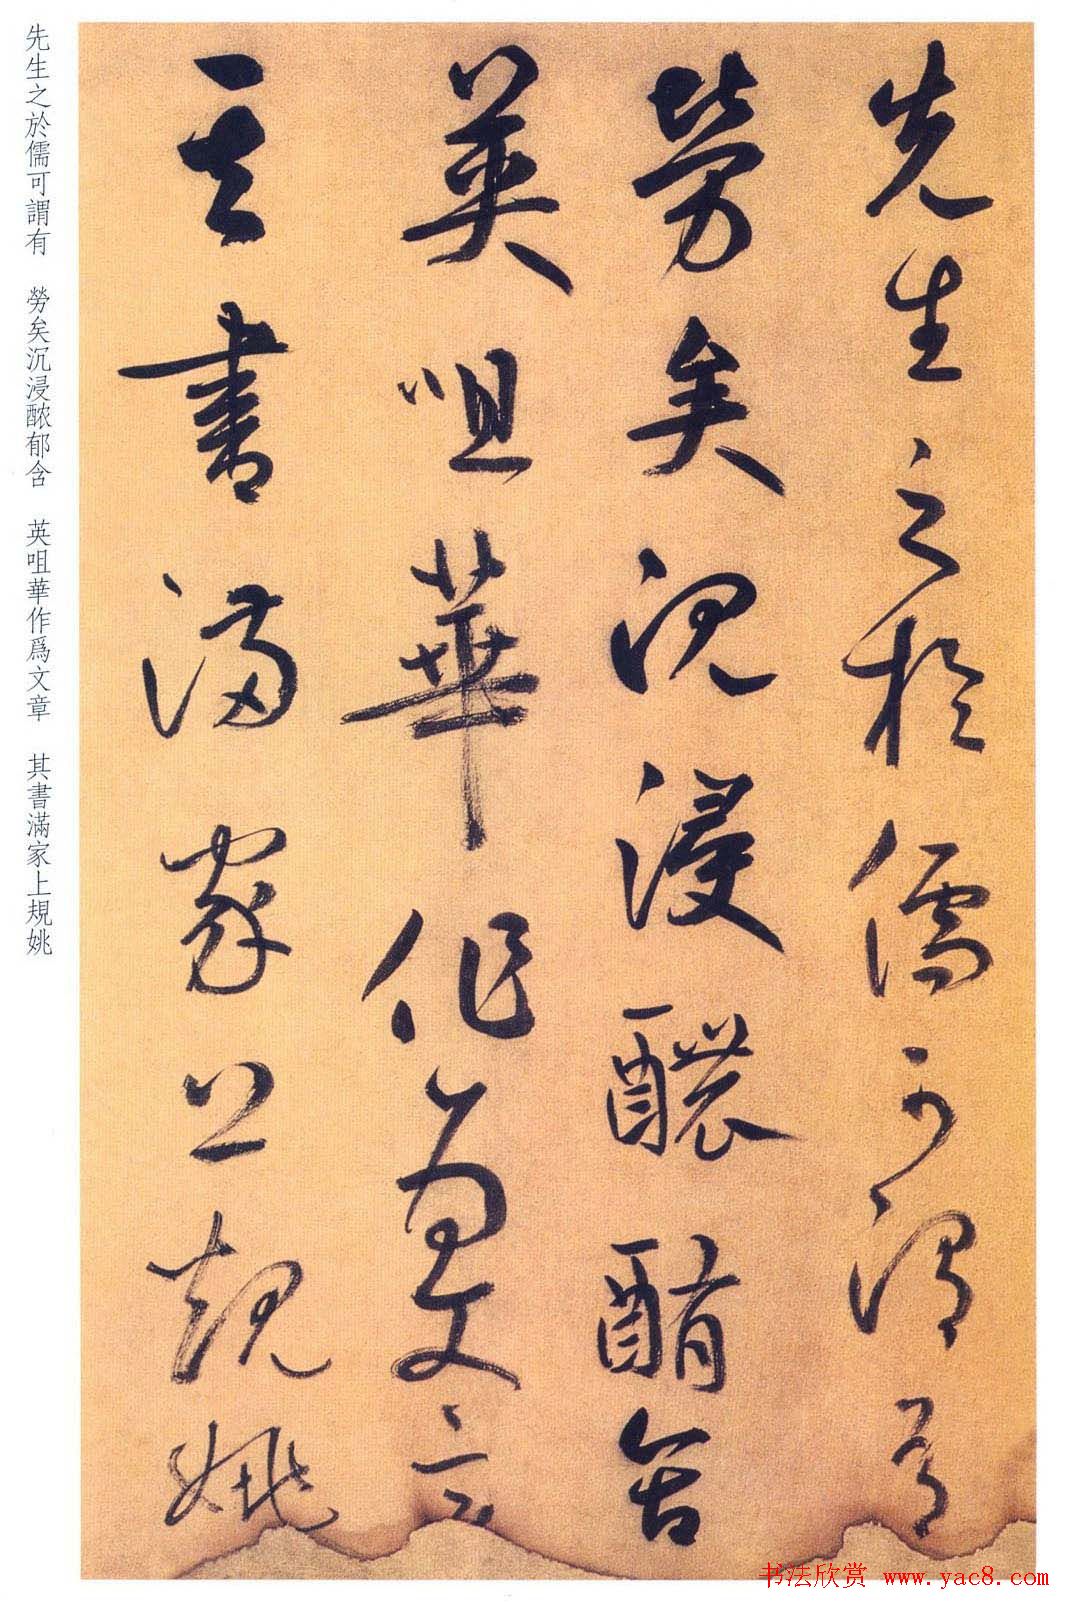 先生之於儒可謂有
勞矣沈浸醲酭含
英咀華作爲文章
其書滿家上規姚
先生之於儒可謂有　勞矣沉浸𬪩郁含　英咀華作爲文章　其書滿家上規姚
书法欣赏 www.yac8.com